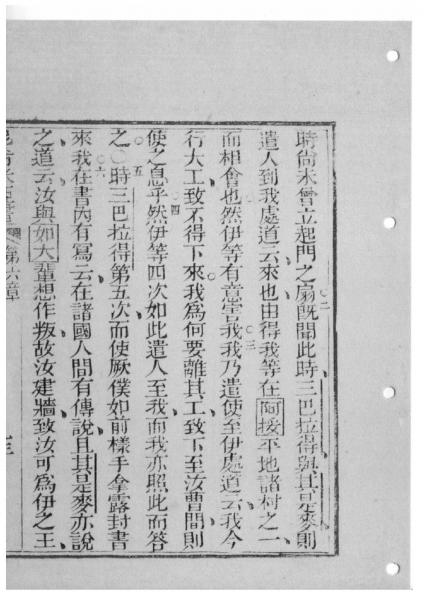 時尚未曾立起門之扇○二既聞此時三巴拉得與其是麥則
遣人到我處道云來也由得我等在阿挼平地諸村之一
而相會也然伊等有意害我○三我乃遣使至伊處道云我今
行大工致不得下來我爲何要離其工致下至汝曹間則
使之息乎○四然伊等四次如此遣人至我而我亦照此而答
之○五時三巴拉得第五次而使厥僕如前樣手拿露封書
來我○六在書內有寫云在諸國人間有傳說且其是麥亦說
之道云汝與如大輩想作叛故汝建牆致汝可爲伊之王
第六章